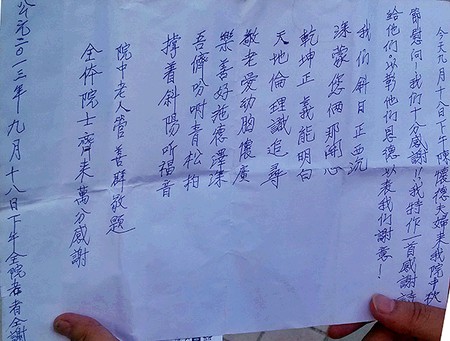 今天九月十八日下午陳懷德夫婦来我院中秋
節慰问,我们十分感謝!!我特作一首感謝詩
给他们,以彰他们恩德,以表我们謝意!
我们斜日正西沉
深蒙您俩那開心
乾坤正義能明白
天地倫理識追尋
敬老愛幼胸懷廣
樂善好施德澤深
吾儕吩咐青松柏
撑着斜陽听福音
院中老人管善群敬題
全体院士齊来萬分感謝
公元二〇一三年九月十八日下午全院老者仝謝